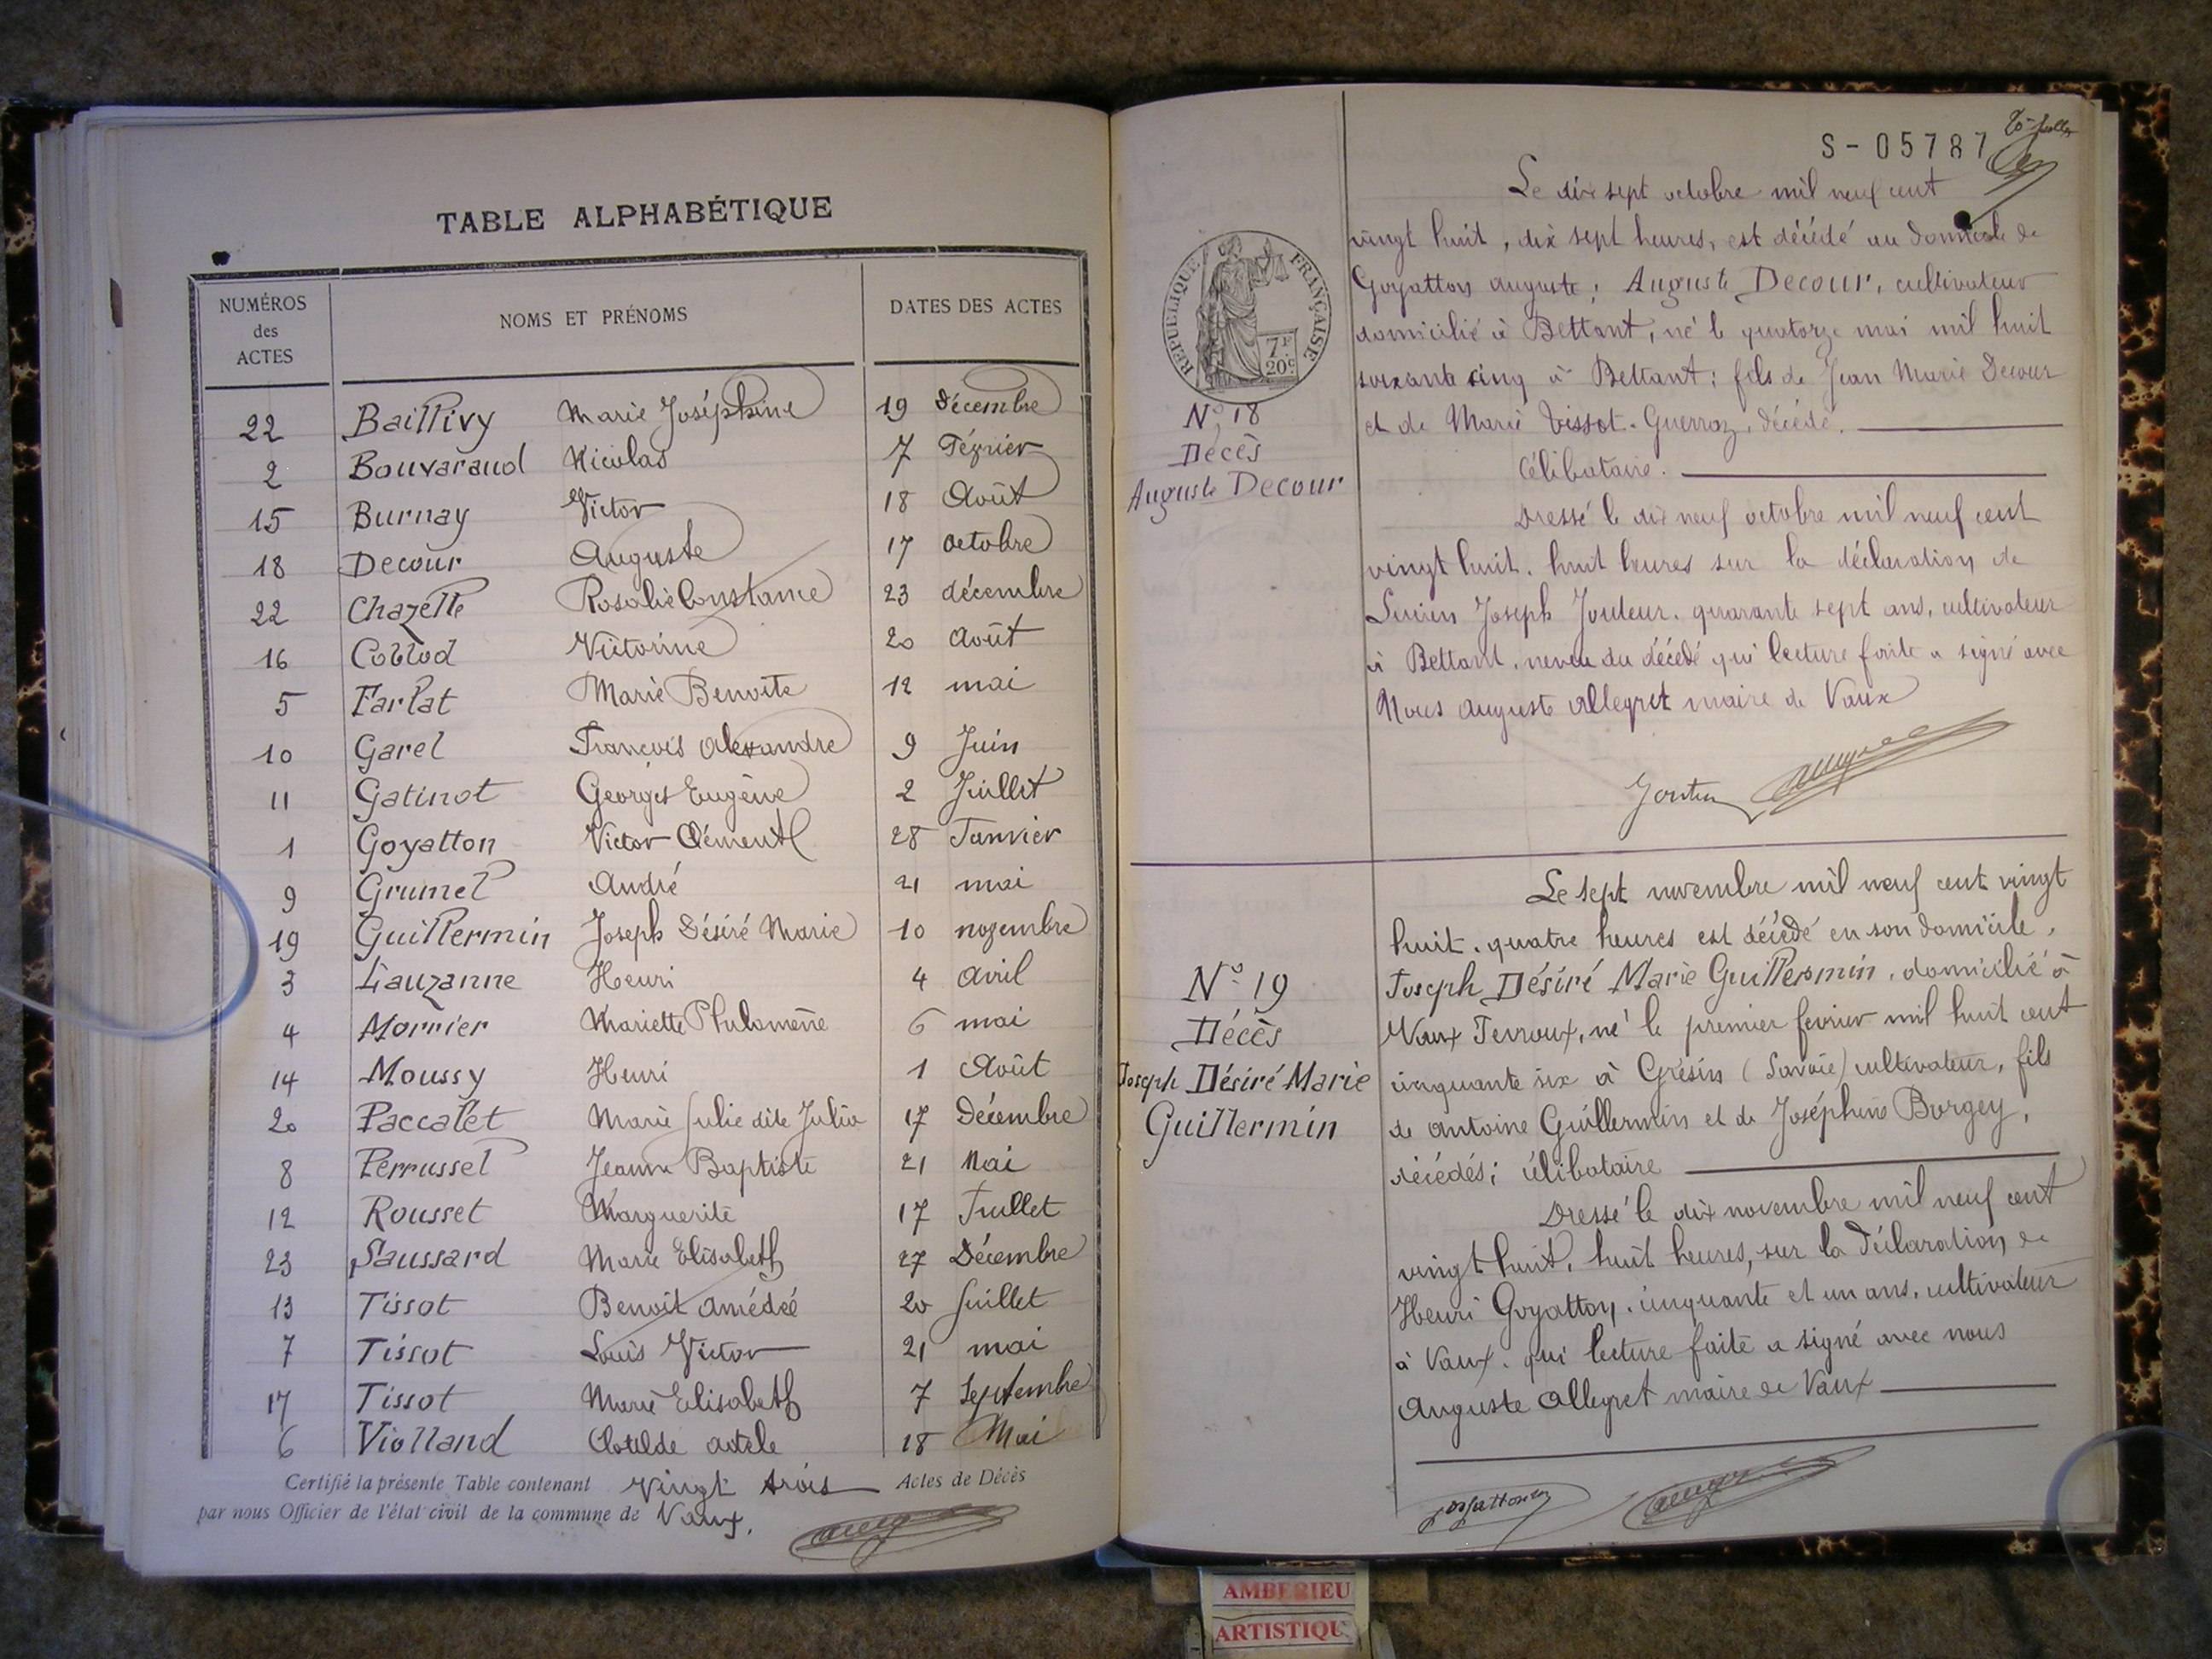 TABLE ALPHABÉTIQUE
NUMÉROS des ACTES NOMS ET PRÉNOMS DATES DES ACTES
22 Baillivy Marie Joséphine 19 décembre
2 Bouvaraud Nicolas 7 Février
15 Burnay Victor 18 Août
18 Decour Auguste 17 octobre
22 Chazelle Rosalie Constance 23 décembre
16 Victorine 20 août
5 Farlat Marie Benoite 12 mai
10 Garel François Alexandre 9 Juin
11 Gatinot Georges Eugène 2 Juillet
1 Goyatton Victor Clément 28 Janvier
9 Grumel André 21 mai
19 Guillermin Joseph Désiré Marie 10 novembre
3 Lauzanne Henri 4 avril
4 Mornier Mariette Philomène 6 mai
14 Moussy Henri 1 Août
20 Paccalet Marie Julie dite Julia 17 Décembre
8 Perrussel Jeanne Baptiste 21 Mai
12 Rousset Marguerite 17 Juillet
23 Saussard Marie Elisabeth 27 Décembre
13 Tissot Benoit Amédée 20 Juillet
7 Tissot Louis Victor 21 mai
17 Tissot Marie Elisabeth 7 Septembre
6 Violland Clotilde 18 Mai
Certifié la présente Table contenant Vingt trois Actes de Décès
par nous Officier de l'état civil de la commune de Vaux.
S - 05787
REPUBLIQUE FRANÇAISE
7F
20c
N° 18
Décès
Auguste Decour
Le dix sept octobre mil neuf cent
vingt huit, dix sept heures, est décédé au domicile de
Goyatton Auguste; Auguste Decour, cultivateur
domicilié à Bettant, né le quatorze mai mil huit
soixante cinq à Bettant; fils de Jean Marie Decour
et de Marie Tissot-Guerraz, décédé.
Célibataire.
Dressé le dix neuf octobre mil neuf cent
vingt huit, huit heures sur la déclaration de
Lucien Joseph Jouteur, quarante sept ans, cultivateur
à Bettant, neveu du décédé qui lecture faite a signé avec
Nous Auguste Allegret maire de Vaux
N° 19
Décès
Joseph Désiré Marie
Guillermin
Le sept novembre mil neuf cent vingt
huit, quatre heures est décédé en son domicile,
Joseph Désiré Marie Guillermin, domicilié à
Vaux Fevroux, né le premier fevrier mil huit cent
cinquante six à Grésin (Savoie) cultivateur, fils
de Antoine Guillermin et de Joséphine Borgey,
décédés; célibataire
Dressé le dix novembre mil neuf cent
vingt huit, huit heures, sur la déclaration de
Henri Goyatton, cinquante et un ans, cultivateur
à Vaux, qui lecture faite a signé avec nous
Auguste Allegret maire de Vaux
AMBERIEU
ARTISTIQU